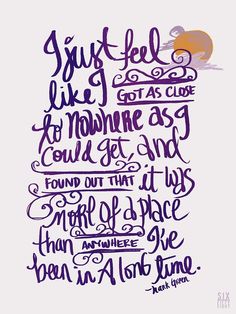 I just feel
like I GOT AS CLOSE
to nowhere as I
could get, and
FOUND OUT THAT it was
more of a place
than ANYWHERE I've
been in A long time.
SIX